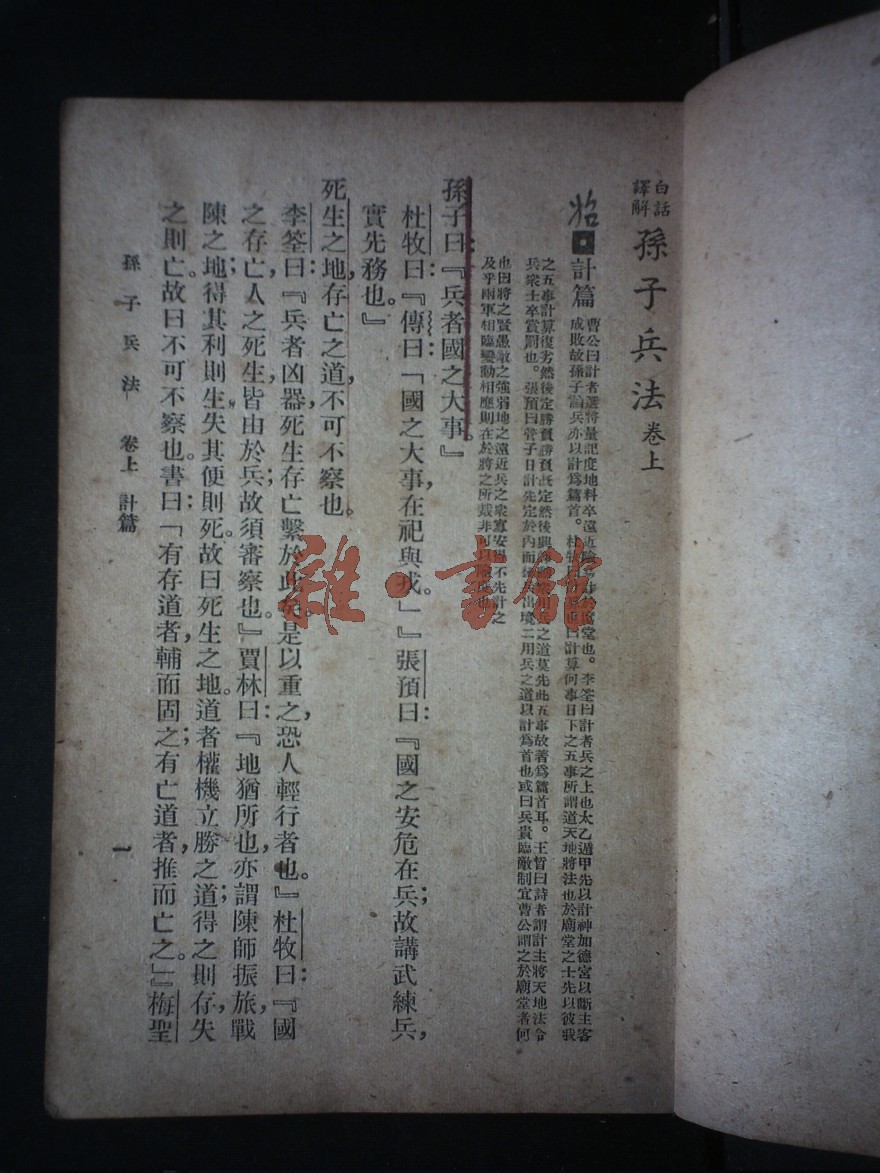 白話
譯解
孫子兵法 卷上
計篇
曹公曰計者選將量
成敗故孫子論兵亦以計爲篇首。
李筌曰計者兵之上也太乙遁甲先以計神加德宮以斷主客
計算何事曰下之五事所謂道天地將法也於廟堂之士先以彼我
之五事計算復劣然後定勝負勝負旣定然後興
用兵之道莫先此五事故著爲篇首耳。王晳曰詩者謂計主將天地法令
兵衆士卒賞罰也。張預曰管子曰計先定於內而
出境二用兵之道以計爲首也或曰兵貴臨敵制宜曹公謂之於廟堂者何
也曰將之賢愚敵之強弱地之遠近兵之衆寡安
不先計之
及乎兩軍相臨變動相應則在於將之所裁非可以
孫子曰：『兵者國之大事。』
杜牧曰：『傳曰：「國之大事，在祀與戎。」』張預曰：『國之安危在兵；故講武練兵，
實先務也。』
死生之地，存亡之道，不可不察也。
李筌曰：『兵者凶器，死生存亡繫於此矣。是以重之，恐人輕行者也。』杜牧曰：『國
之存亡，人之死生，皆由於兵；故須審察也。』賈林曰：『地猶所也，亦謂陳師振旅，戰
陳之地；得其利則生，失其便則死。故曰死生之地。道者權機立勝之道；得之則存，失
之則亡。故曰不可不察也。書曰：「有存道者，輔而固之；有亡道者，推而亡之。」』梅聖
孫子兵法 卷上 計篇
一
雜·書館